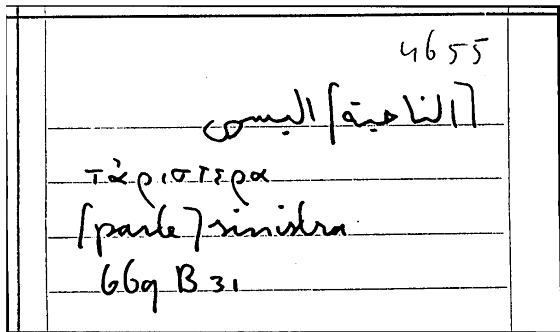 4655
[الناحية] اليسرى
τἀριστερα
[parte] sinistra
669 B 31